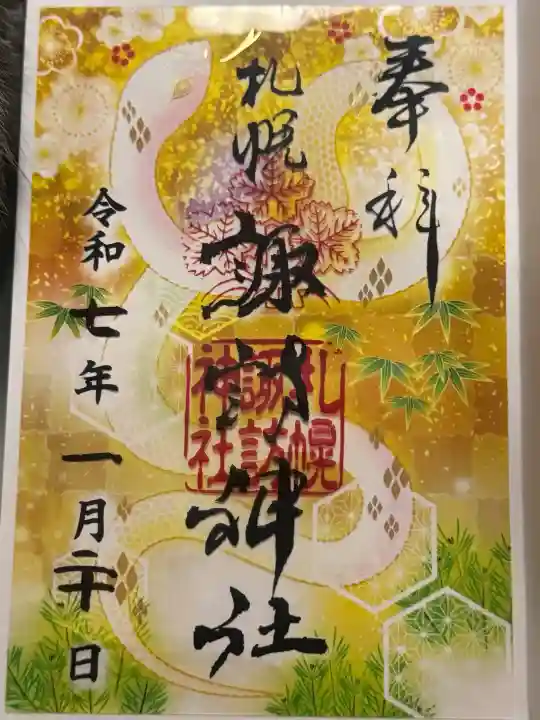 奉拝
札幌
諏訪神社
札幌
諏訪
神社
令和七年一月二十日